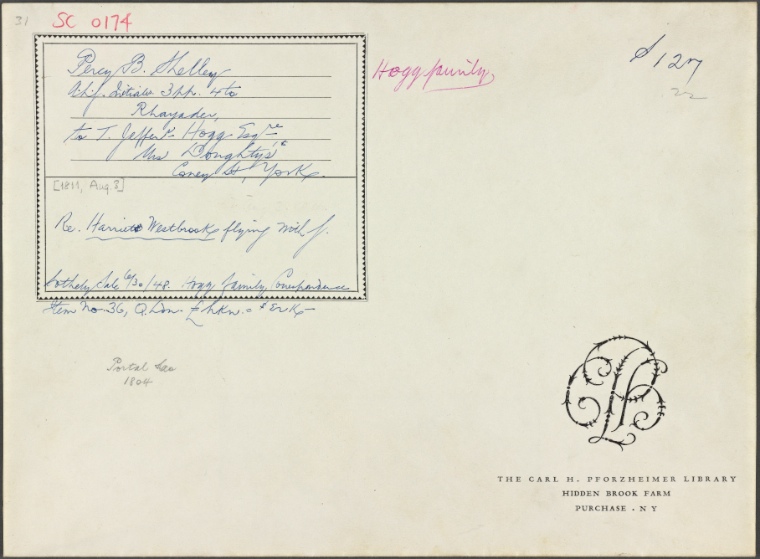 31
SC 0174
Percy B. Shelley
3 pp. 4to
Rhayader,
to T. Jeffn. Hogg Esqre
Mrs Doughty's
Coney St, York.
[1811, Aug 3]
Re. Harriet Westbrook flying with
Sotheby Sale 6/30/48. Hogg family Correspondence
Item No. 36,
Hogg family
$127
22
Postal
1804
THE CARL H. PFORZHEIMER LIBRARY
HIDDEN BROOK FARM
PURCHASE . N Y